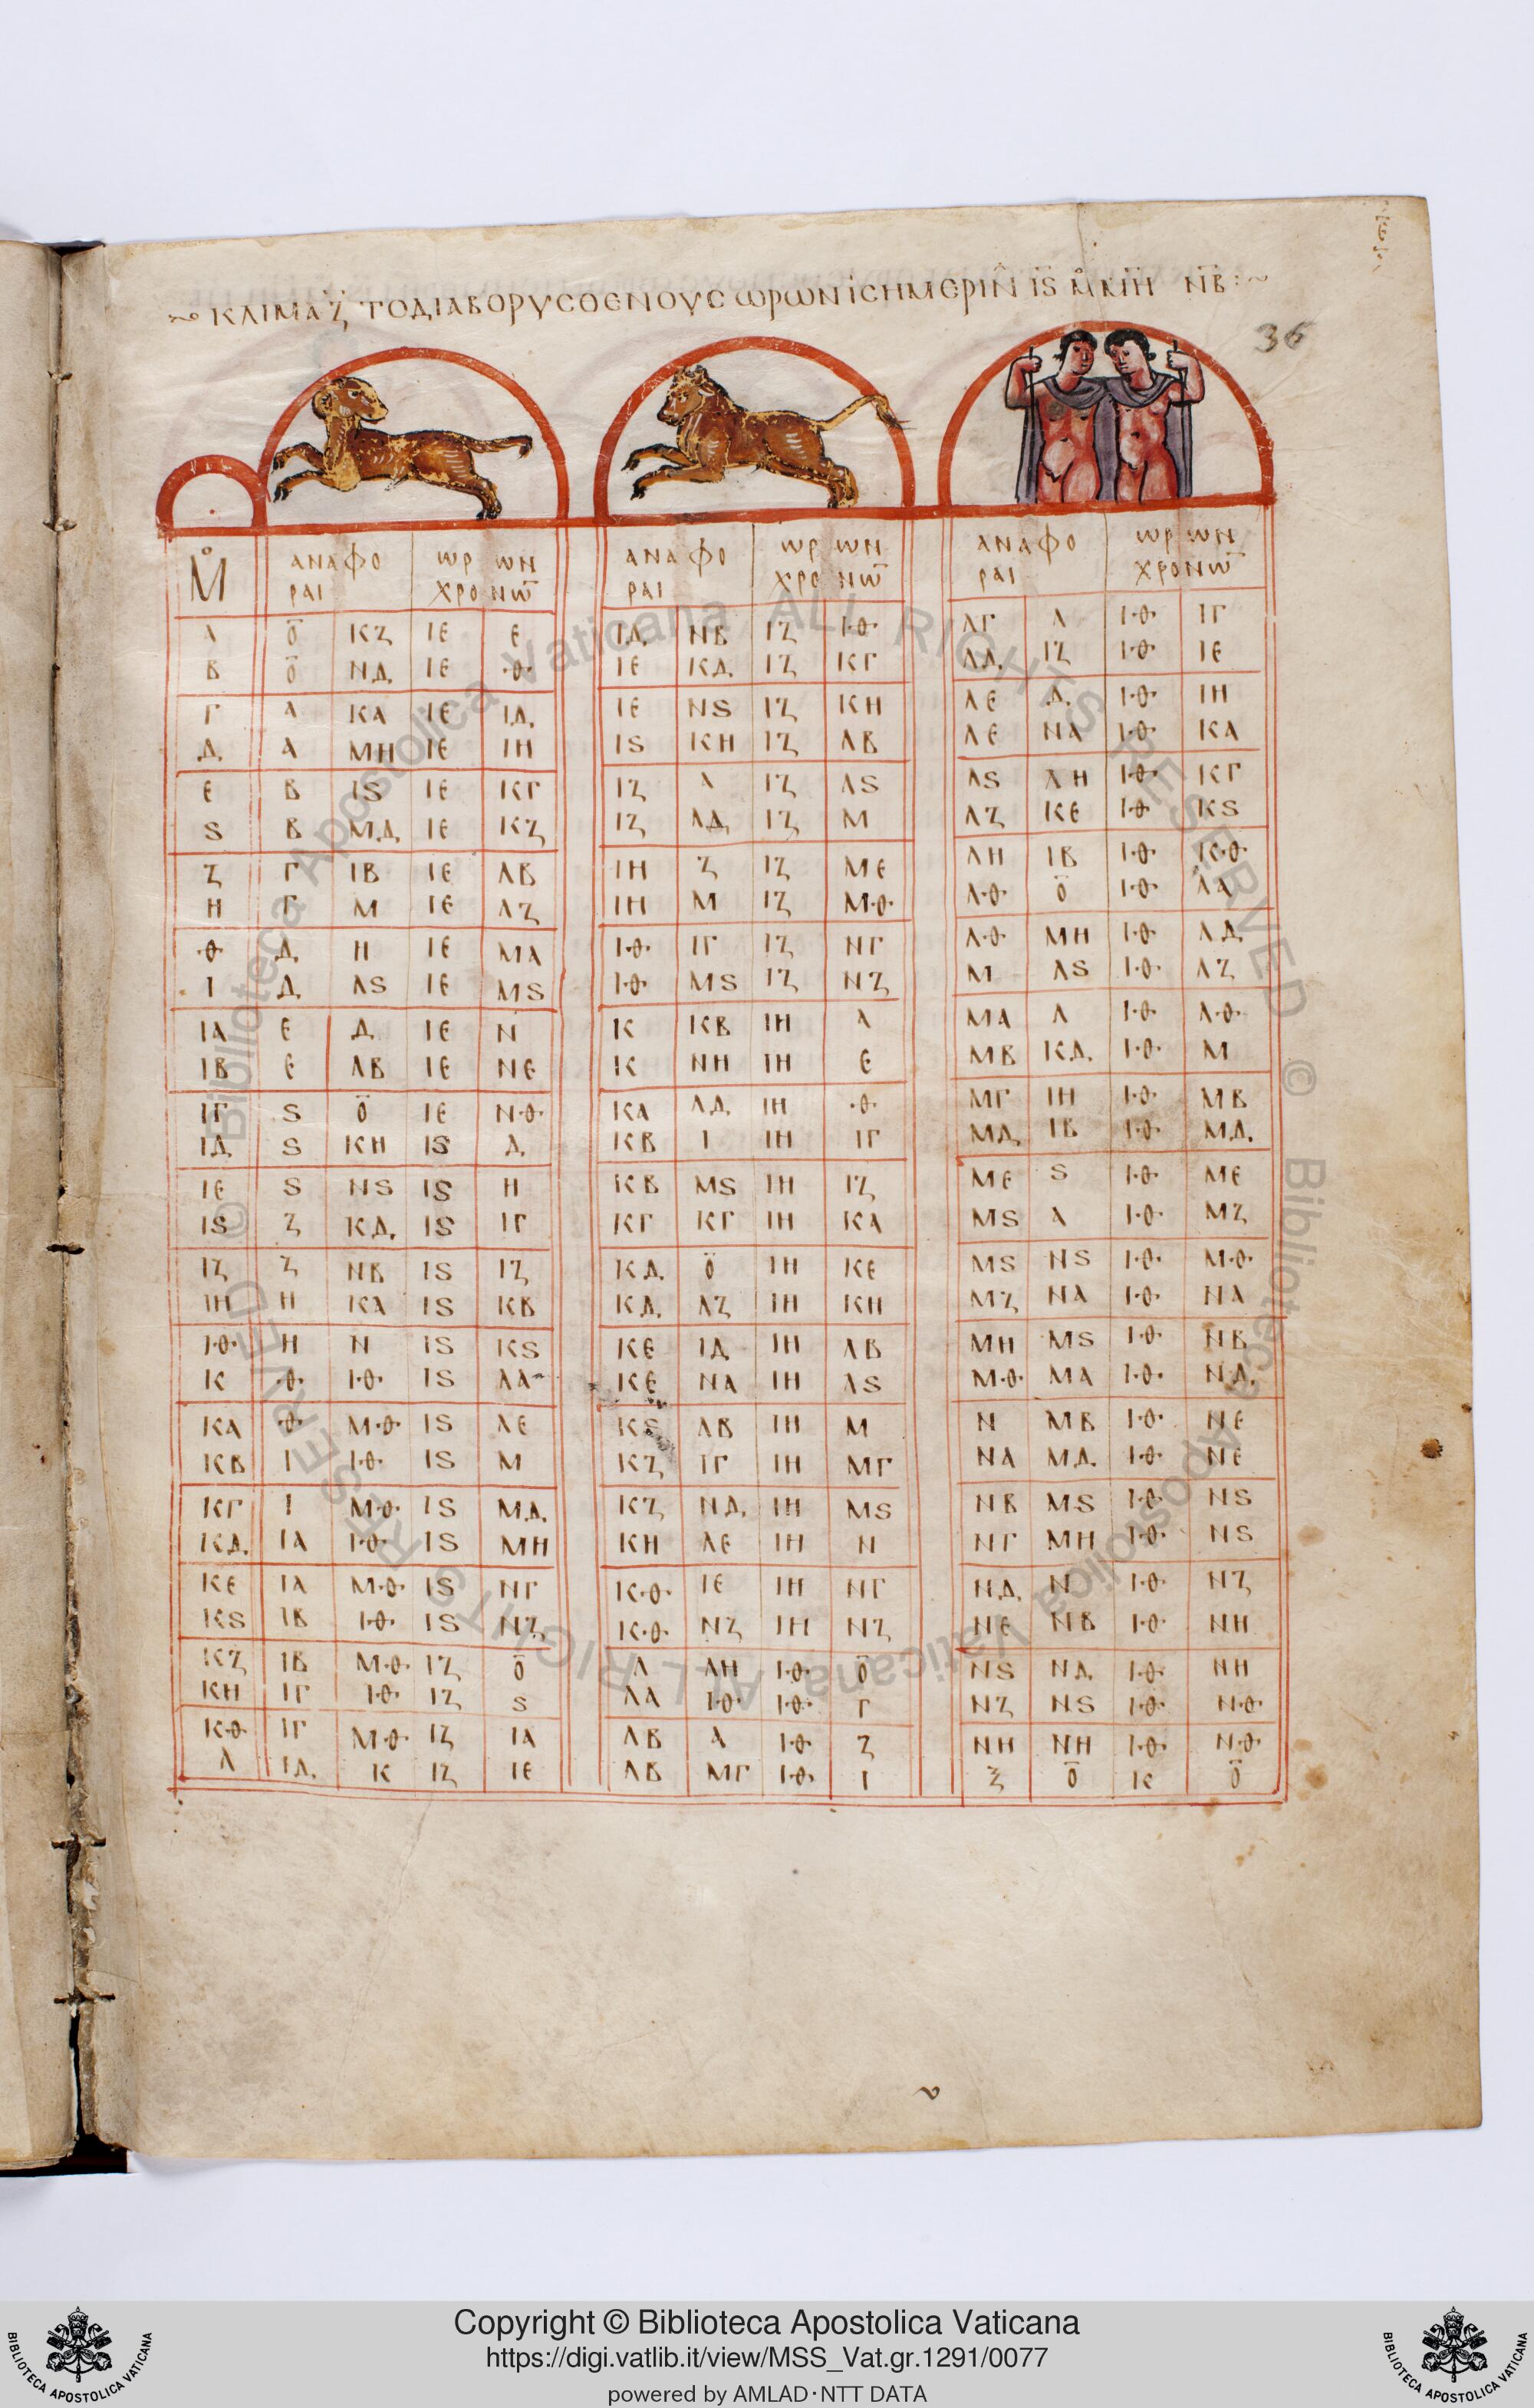 ΚΛΙΜΑ Ζ ΤΟ ΔΙΑ ΒΟΡΥСΘΕΝΟΥС ωΡωΝ ΙСΗΜΕΡΙΝ ΙS Μ ΜΗ ΝΒ
36
Μ ΑΝΑΦΟ ωΡ ωΝ ΑΝΑΦΟ ωΡ ωΝ ΑΝΑΦΟ ωΡ ωΝ
ΡΑΙ ΧΡΟΝω ΡΑΙ ΧΡΟΝω ΡΑΙ ΧΡΟΝω
Α Ο ΚΖ ΙΕ Ε ΙΔ ΝΒ ΙΖ ΙΘ ΛΓ Λ ΙΘ ΙΓ
Β Ο ΝΔ ΙΕ Θ ΙΕ ΚΔ ΙΖ ΚΓ ΛΔ ΙΖ ΙΘ ΙΕ
Γ Α ΚΑ ΙΕ ΙΔ ΙΕ ΝS ΙΖ ΚΗ ΛΕ Δ ΙΘ ΙΗ
Δ Α ΜΗ ΙΕ ΙΗ ΙS ΚΗ ΙΖ ΛΒ ΛΕ ΝΑ ΙΘ ΚΑ
Ε Β ΙS ΙΕ ΚΓ ΙΖ Α ΙΖ ΛS ΛS ΛΗ ΙΘ ΚΓ
S Β ΜΔ ΙΕ ΚΖ ΙΖ ΛΔ ΙΖ Μ ΛΖ ΚΕ ΙΘ ΚS
Ζ Γ ΙΒ ΙΕ ΛΒ ΙΗ Ζ ΙΖ ΜΕ ΛΗ ΙΒ ΙΘ ΚΘ
Η Γ Μ ΙΕ ΛΖ ΙΗ Μ ΙΖ ΜΘ ΛΘ Ο ΙΘ ΛΑ
Θ Δ Η ΙΕ ΜΑ ΙΘ ΙΓ ΙΖ ΝΓ ΛΘ ΜΗ ΙΘ ΛΔ
Ι Δ ΛS ΙΕ ΜS ΙΘ ΜS ΙΖ ΝΖ Μ ΛS ΙΘ ΛΖ
ΙΑ Ε Δ ΙΕ Ν Κ ΚΒ ΙΗ Α ΜΑ Λ ΙΘ ΛΘ
ΙΒ Ε ΛΒ ΙΕ ΝΕ Κ ΝΗ ΙΗ Ε ΜΒ ΚΔ ΙΘ Μ
ΙΓ S Ο ΙΕ ΝΘ ΚΑ ΛΔ ΙΗ Θ ΜΓ ΙΗ ΙΘ ΜΒ
ΙΔ S ΚΗ ΙS Δ ΚΒ Ι ΙΗ ΙΓ ΜΔ ΙΒ ΙΘ ΜΔ
ΙΕ S ΝS ΙS Η ΚΒ ΜS ΙΗ ΙΖ ΜΕ S ΙΘ ΜΕ
ΙS Ζ ΚΔ ΙS ΙΓ ΚΓ ΚΓ ΙΗ ΚΑ ΜS Α ΙΘ ΜΖ
ΙΖ Ζ ΝΒ ΙS ΙΖ ΚΔ Ο ΙΗ ΚΕ ΜS ΝS ΙΘ ΜΘ
ΙΗ Η ΚΑ ΙS ΚΒ ΚΔ ΛΖ ΙΗ ΚΗ ΜΖ ΝΑ ΙΘ ΝΑ
ΙΘ Η Ν ΙS ΚS ΚΕ ΙΔ ΙΗ ΛΒ ΜΗ ΜS ΙΘ ΝΒ
Κ Θ ΙΘ ΙS ΛΑ ΚΕ ΝΑ ΙΗ ΛS ΜΘ ΜΑ ΙΘ ΝΔ
ΚΑ Θ ΜΘ ΙS ΛΕ ΚS ΛΒ ΙΗ Μ Ν ΜΒ ΙΘ ΝΕ
ΚΒ Ι ΙΘ ΙS Μ ΚΖ ΙΓ ΙΗ ΜΓ ΝΑ ΜΔ ΙΘ ΝΕ
ΚΓ Ι ΜΘ ΙS ΜΔ ΚΖ ΝΔ ΙΗ ΜS ΝΒ ΜS ΙΘ ΝS
ΚΔ ΙΑ ΙΘ ΙS ΜΗ ΚΗ ΛΕ ΙΗ Ν ΝΓ ΜΗ ΙΘ ΝS
ΚΕ ΙΑ ΜΘ ΙS ΝΓ ΚΘ ΙΕ ΙΗ ΝΓ ΝΔ Ν ΙΘ ΝΖ
ΚS ΙΒ ΙΘ ΙS ΝΖ ΚΘ ΝΖ ΙΗ ΝΖ ΝΕ ΝΒ ΙΘ ΝΗ
ΚΖ ΙΒ ΜΘ ΙΖ Ο Λ ΛΗ ΙΘ Ο ΝS ΝΔ ΙΘ ΝΗ
ΚΗ ΙΓ ΙΘ ΙΖ S ΛΑ ΙΘ ΙΘ Γ ΝΖ ΝS ΙΘ ΝΘ
ΚΘ ΙΓ ΜΘ ΙΖ ΙΑ ΛΒ Α ΙΘ Ζ ΝΗ ΝΗ ΙΘ ΝΘ
Λ ΙΔ Κ ΙΖ ΙΕ ΛΒ ΜΓ ΙΘ Ι Ξ Ο Κ Ο
© Biblioteca Apostolica Vaticana ALL RIGHTS RESERVED © Biblioteca Apostolica Vaticana ALL RIGHTS RESERVED
Copyright © Biblioteca Apostolica Vaticana
https://digi.vatlib.it/view/MSS_Vat.gr.1291/0077
powered by AMLAD·NTT DATA
BIBLIOTECA APOSTOLICA VATICANA
BIBLIOTECA APOSTOLICA VATICANA